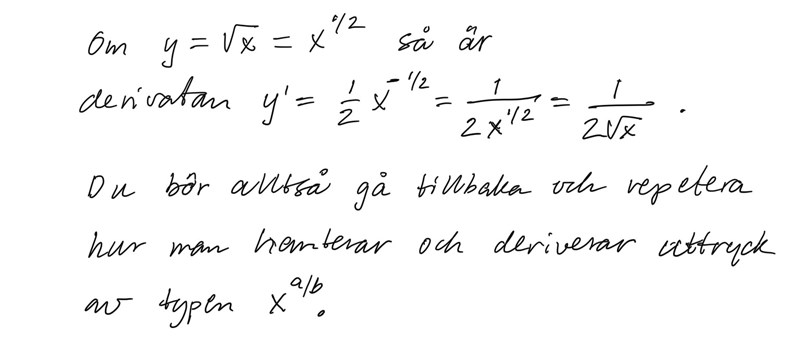 Om y = √x = x^1/2 så är
derivatan y' = 1/2 x^-1/2 = 1/(2x^1/2) = 1/(2√x) .
Du bör alltså gå tillbaka och repetera
hur man hanterar och deriverar uttryck
av typen x^a/b.